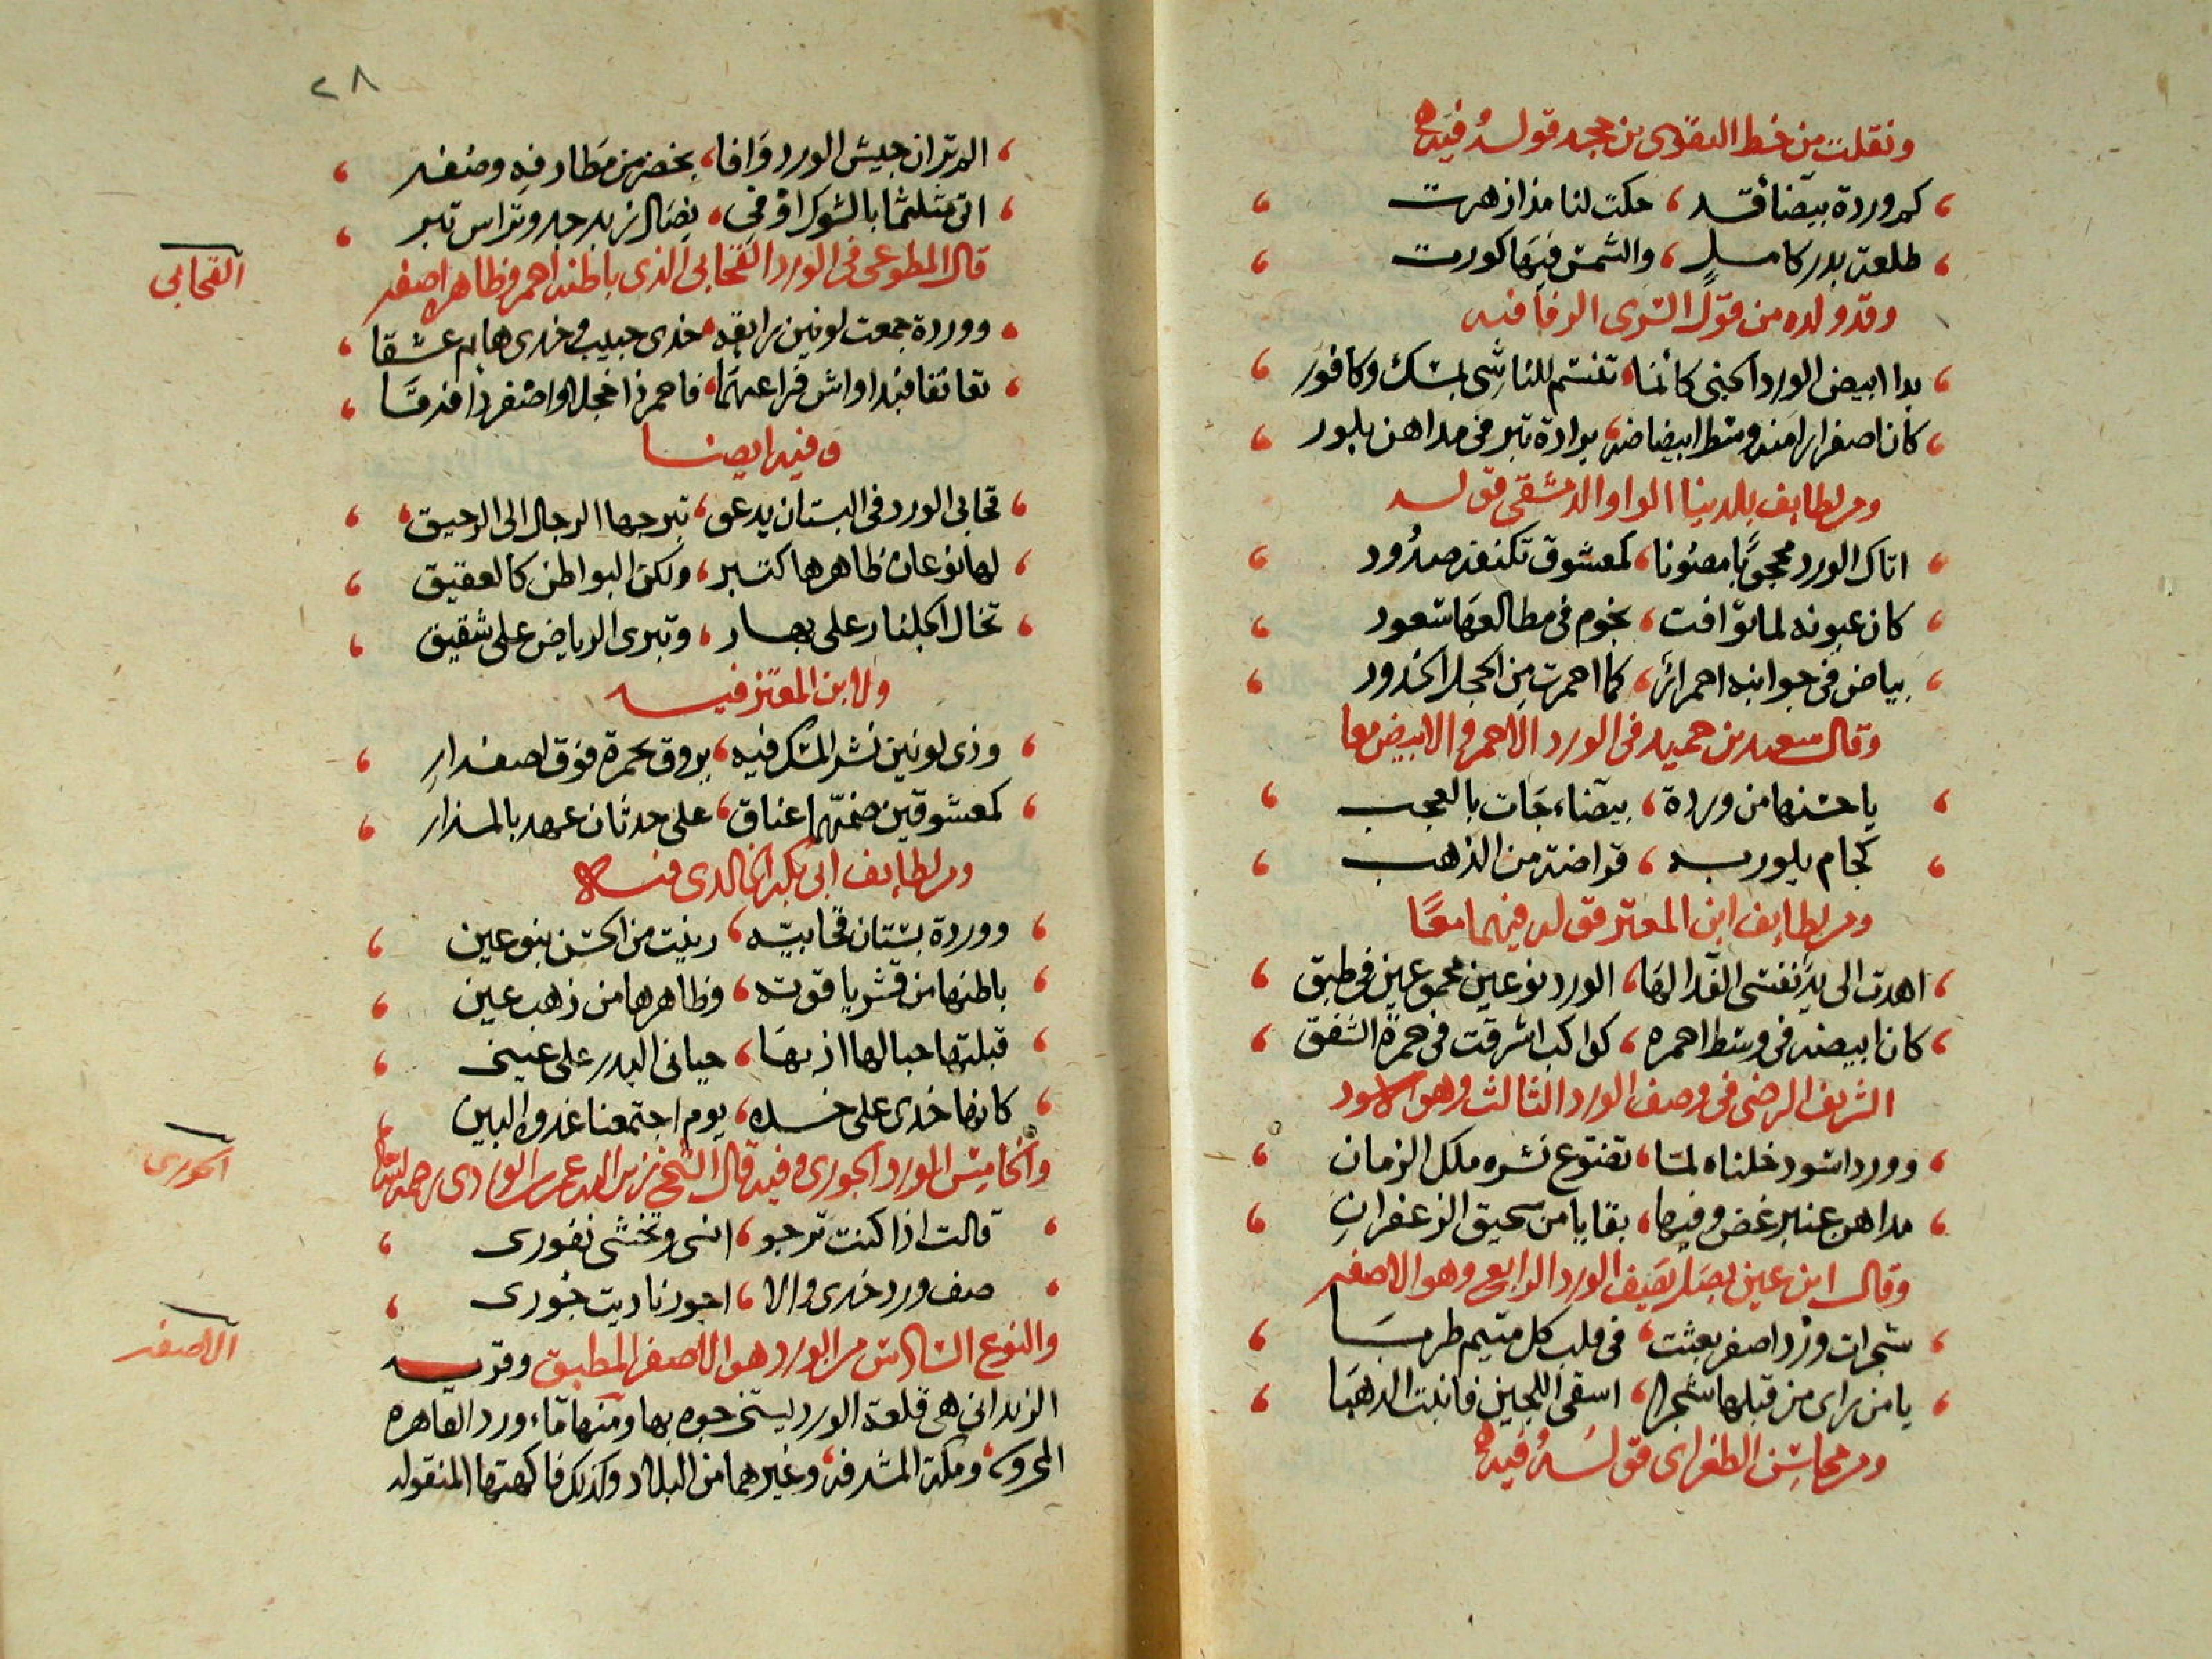 ونقلت من خط التقوى بن حجه قوله فيه
كم وردة بيضا قد ، حكت لنا مذ ازهرت
طلعة بدر كامل ، والشمس فيها كورت
وقد ولده من قول السرى الرفا فيه
بدا ابيض الورد الجنى كانما ، تنسم للناشى بمسك وكافور
كان اصفرارا منه وسط ابيضاضه ، برادة تبر فى مداهن بلور
ومن لطايف بلدينا الواوا الدمشقى قوله
اتاك الورد محجوبا مصونا ، كمعشوق تكنفه صدود
كان عيونه لما توافت ، نجوم فى مطالعها سعود
بياض فى جوانبه احمرار ، كما احمرت من الخجل الخدود
وقال سعيد بن حميد فى الورد الاحمر والابيض معا
يا حسنها من وردة ، بيضاء جات بالعجب
كجام بلور به ، قراضة من الذهب
ومن لطايف ابن المعتز قوله فيهما معًا
اهدت الى يد نفسى الفدا لها ، الورد نوعين مجموعين فى طبق
كان ابيضه فى وسط احمره ، كواكب اشرقت فى حمرة الشفق
الشريف الرضى فى وصف الورد الثالث وهو الاسود
وورد اسود خلناه لما ، تضوع نشره ملك الزمان
مداهن عنبر غض وفيها ، بقايا من سحيق الزعفران
وقال ابن عين بصل يصف الورد الرابع وهو الاصفر
شجرات ورد اصفر بعثت ، فى قلب كل متيم طربا
يا من راى من قبلها شجرا ، اسقى اللجين فانبت الذهبا
ومن محاسن الطغراى قوله فيه
٢٨
الم تر ان جيش الورد وافا ، بخضر من مطارفه وصفر
اتى متلثما بالشوك اوفى ، نصال زبرجد وتراس تبر
قال المطوعى فى الورد القحابى الذى باطنه احمر وظاهره اصفر
القحابى
ووردة جمعت لونين رايقة ، خدى حبيب وخدى هايم عشقا
تعانقا فبدا واش فراعهما ، فاحمر ذا خجلا واصفر ذا فرقا
وفيه ايضا
قحابى الورد فى البستان يدعو ، تبرجها الرجال الى الرحيق
لها نوعان ظاهرها كتبر ، ولكن البواطن كالعقيق
تخال الجلنار على بهار ، وتبرى الرياض على شقيق
ولابن المعتز فيه
وذى لونين نشر المسك فيه ، يروق بحمرة فوق اصفرار
كمعشوقين ضمهما عناق ، على حدثان عهد بالمزار
ومن لطايف ابى بكر الخالدى فيه
ووردة بستان قحابيه ، زينت من الحسن بنوعين
باطنها من قشر ياقوته ، وظاهرها من ذهب عين
قبلتها حبا لها اذ بها ، حيانى البدر على عينى
كانها خدى على خده ، يوم اجتمعنا غدوة البين
والخامس الورد الجورى وفيه قال الشيخ زين الدين عمر بن الوردى رحمه الله تعالى
الجورى
قالت اذا كنت ترجو ، انسى وتخشى نفورى
صف ورد خدى والا ، اجور ناديت جورى
والنوع السادس من الورد هو الاصفر المطبق وقريه
الاصفر
الزبدانى هى قلعة الورد يستخرجوه بها ومنها ماء ورد القاهره
المحروسه ومكة المشرفه وغيرهما من البلاد وكذلك فاكهتها المنقوله